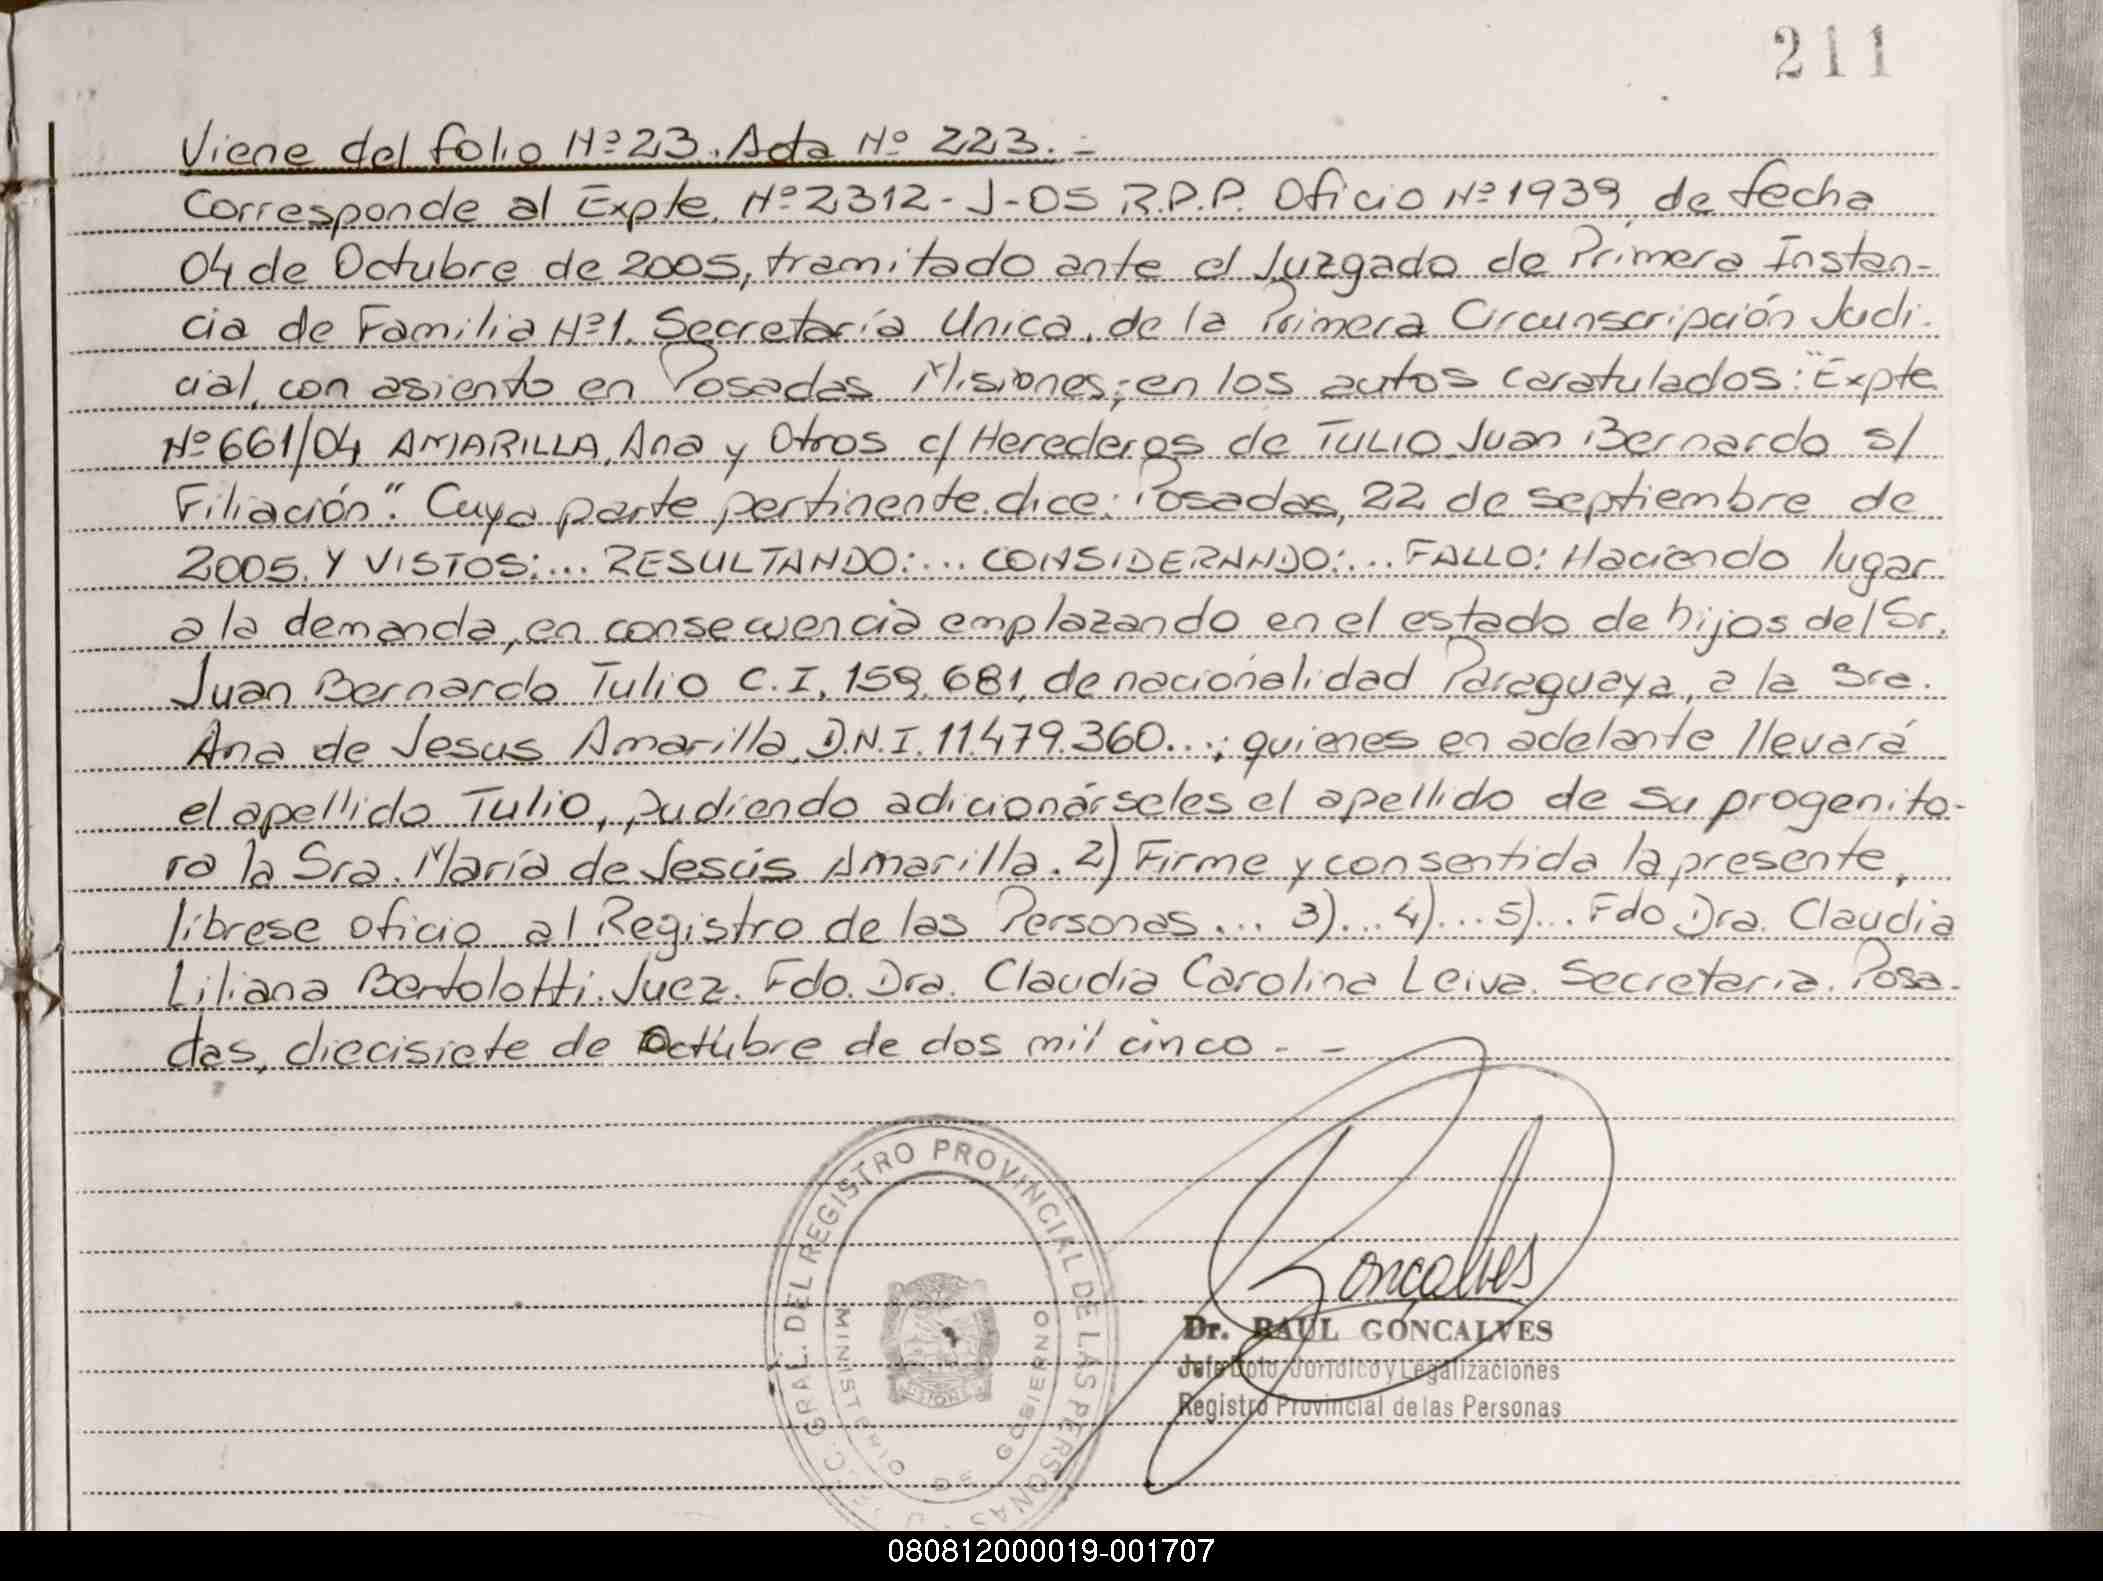 211
Viene del folio Nº 23. Acta Nº 223. -
Corresponde al Expte. Nº 2312-J-05 R.P.P. Oficio Nº 1939, de fecha
04 de Octubre de 2005, tramitado ante el Juzgado de Primera Instan-
cia de Familia Nº 1. Secretaría Unica, de la Primera Circunscripción Judi-
cial, con asiento en Posadas Misiones; en los autos caratulados: "Expte
Nº 661/04 AMARILLA, Ana y Otros c/ Herederos de TULIO Juan Bernardo s/
Filiación". Cuya parte pertinente dice: Posadas, 22 de septiembre de
2005. Y VISTOS:... RESULTANDO:... CONSIDERANDO:... FALLO: Haciendo lugar
a la demanda, en consecuencia emplazando en el estado de hijos del Sr.
Juan Bernardo Tulio C.I. 159.681, de nacionalidad Paraguaya, a la Sra.
Ana de Jesus Amarilla, D.N.I. 11.479.360...; quienes en adelante llevará
el apellido Tulio, pudiendo adicionárseles el apellido de su progenito-
ra la Sra. María de Jesús Amarilla. 2) Firme y consentida la presente,
líbrese oficio al Registro de las Personas... 3)... 4)... 5)... Fdo Dra. Claudia
Liliana Bertolotti. Juez. Fdo. Dra. Claudia Carolina Leiva. Secretaria. Posa-
das, diecisiete de Octubre de dos mil cinco - -
GRAL. DEL REGISTRO PROVINCIAL DE LAS PERSONAS
MINISTERIO DE GOBIERNO
Goncalves
Dr. RAUL GONCALVES
Jefe Dpto. Jurídico y Legalizaciones
Registro Provincial de las Personas
080812000019-001707